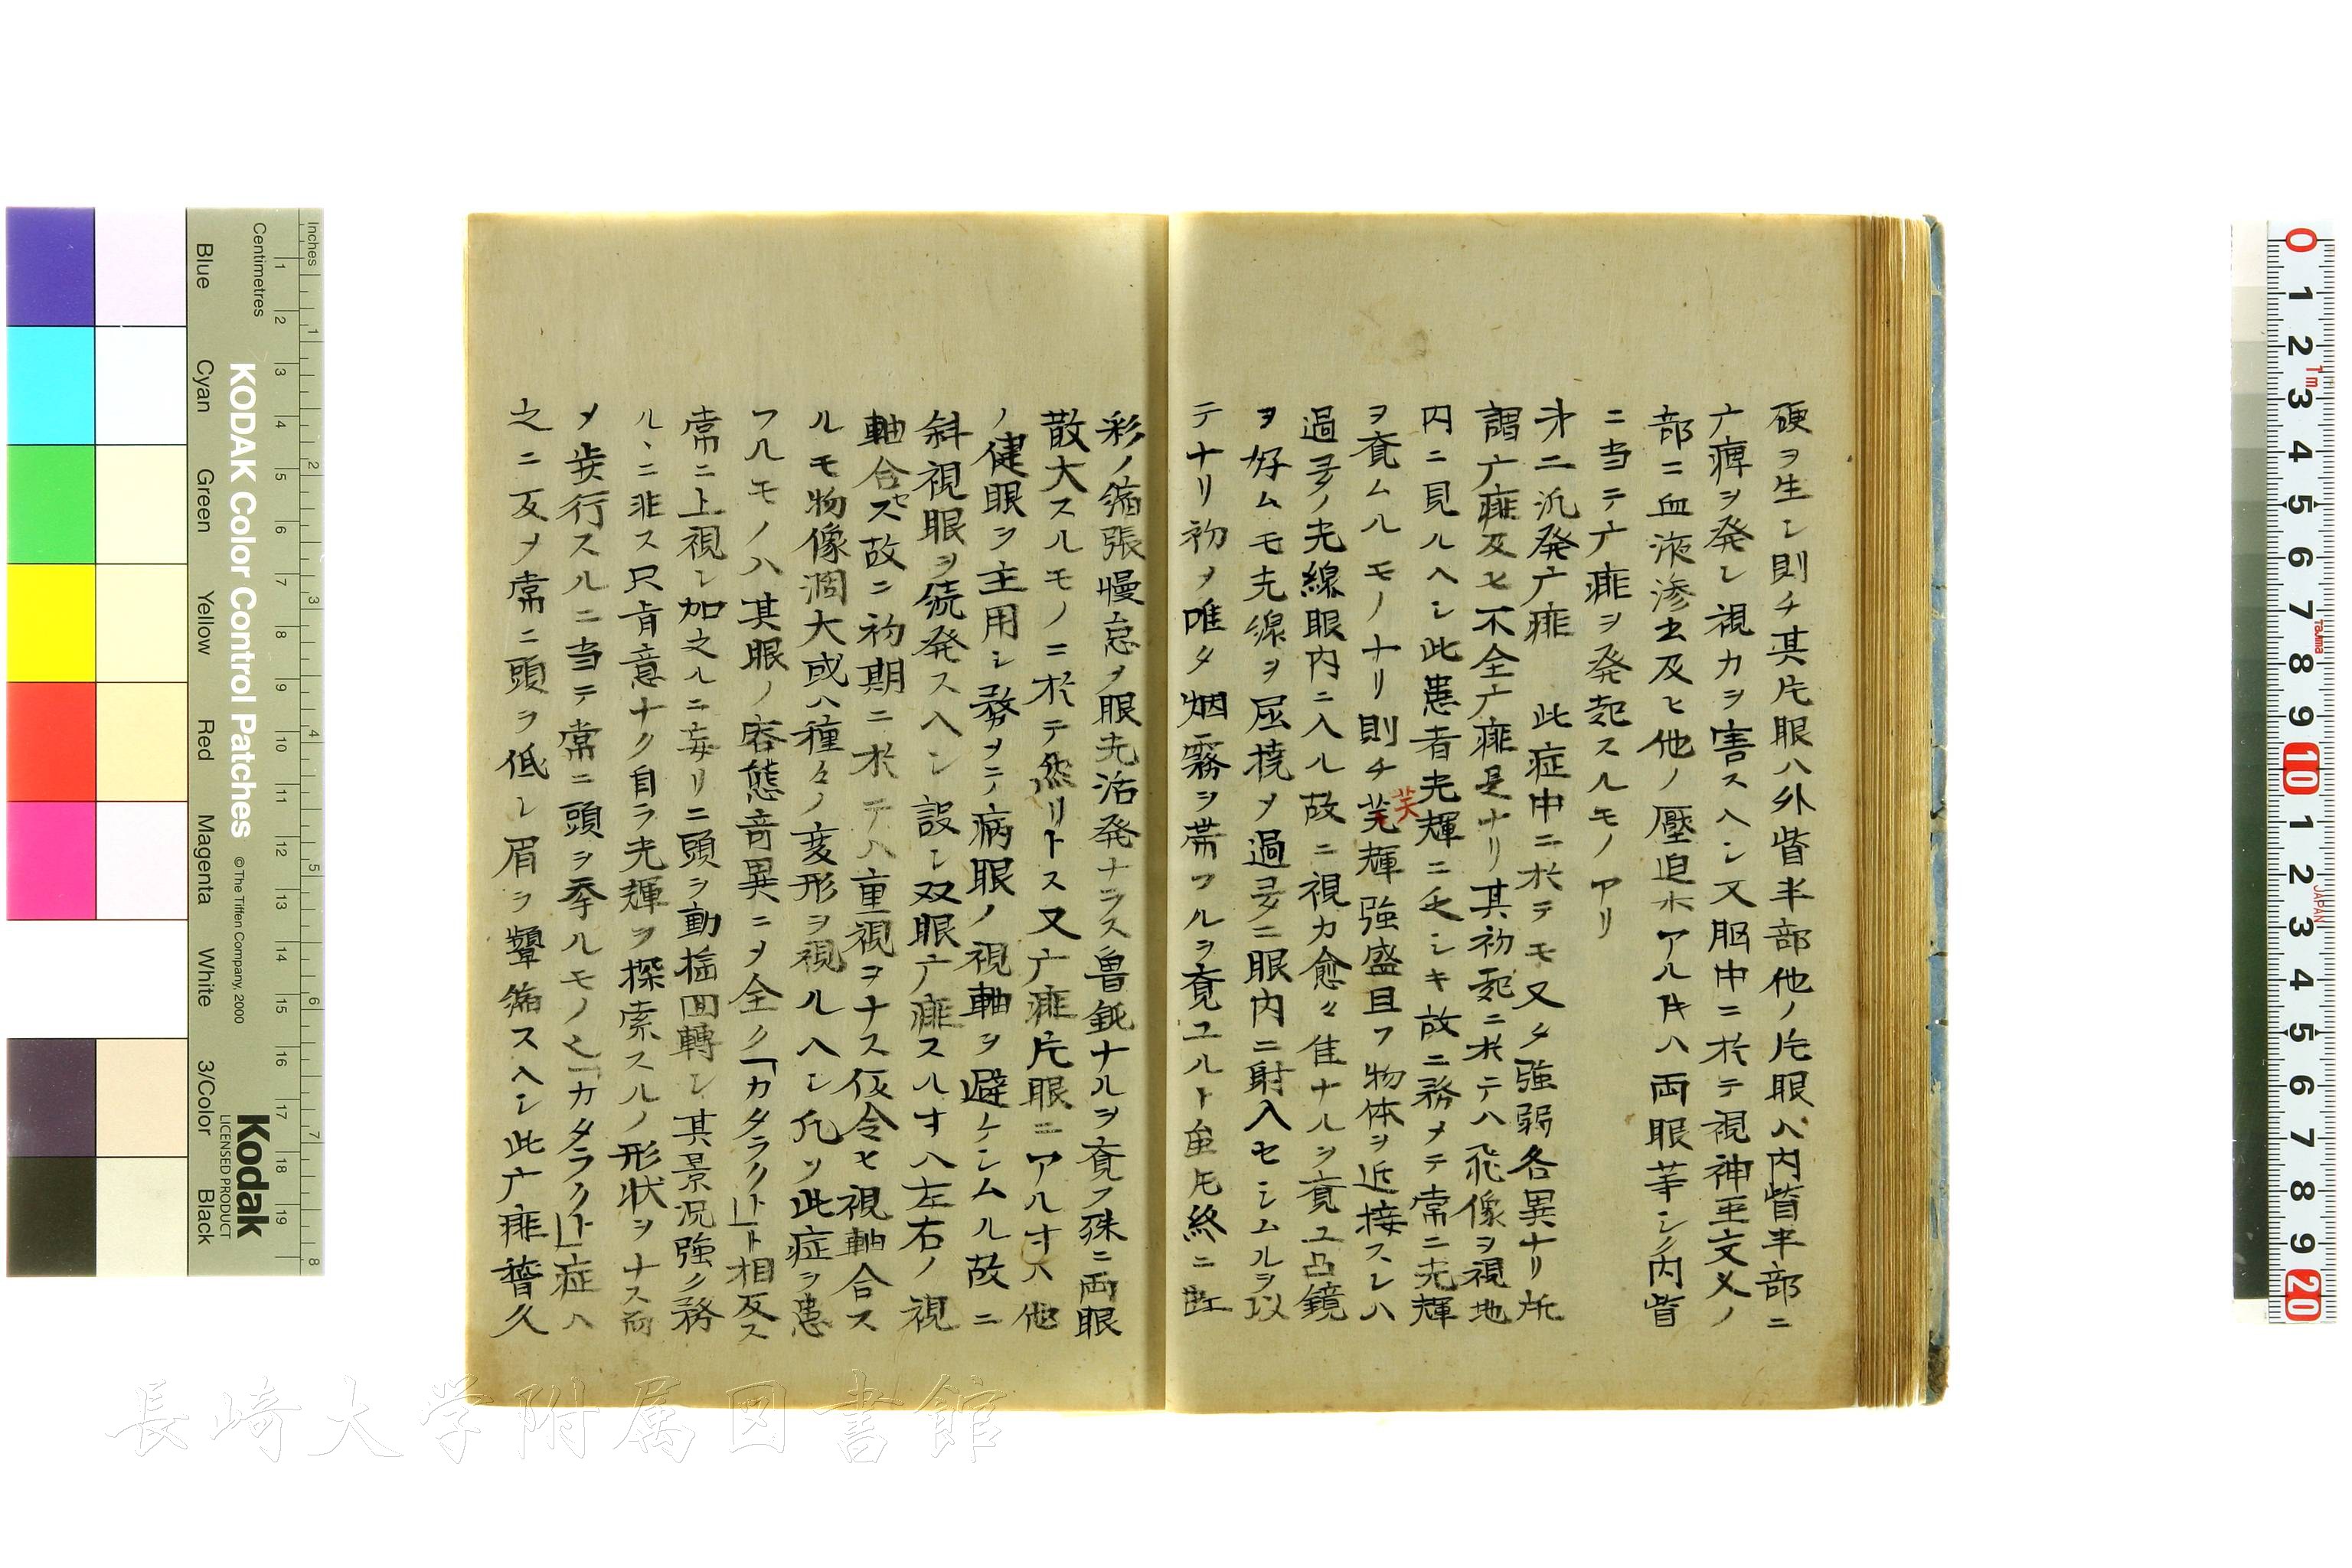 硬ヲ生シ則チ其片眼ハ外眥半部他ノ片眼ハ内眥半部ニ
广痺ヲ発シ視力ヲ害スヘシ又脳中ニ於テ視神至交叉ノ
部ニ血液滲出及ヒ他ノ壓迫ホアル片ハ両眼並シ内眥
ニ当テ广痱ヲ発起スルモノアリ
才二汎発广痱 此症中ニ於テモ又タ強弱各異ナリ所
謂广痱及ヒ不全广痱是ナリ其初起ニ於テハ飛像ヲ視地
内ニ見ルヘシ此患者光輝ニ乏シキ故ニ務メテ常ニ光輝
ヲ覓ムルモノナリ則チ光輝強盛且フ物体ヲ近接スレハ
過多ノ光線眼内ニ入ル故ニ視力愈々佳ナルヲ覓ユ凸鏡
ヲ好ムモ光線ヲ屈撓メ過多ニ眼内ニ射入セシムルヲ以
テナリ初メ唯タ烟霧ヲ帯フルヲ覓ユルト虽氏終ニ虹
彩ノ縮張慢怠メ眼光活発ナラス魯鈍ナルヲ覓フ殊ニ両眼
散大スルモノニ於テ然リトス又广痱片眼ニアルオハ他
ノ健眼ヲ主用シ務ヲテ病眼ノ視軸ヲ避ケシムル故ニ
斜視眼ヲ続発スヘシ設シ双眼广痱スルオハ左右ノ視
軸合セス故ニ初期ニ於テハ重視ヲナス仮令ヒ視軸合ス
ルモ物像濶大或ハ種々ノ変形ヲ視ルヘシ凡ソ此症ヲ患
フルモノハ其眼ノ容態奇異ニメ全ク「カタラクト」ト相反ス
常ニ上視シ加之ルニ妄リニ頭ヲ動揺回轉シ其景況強ク務
ルヽニ非ス只肯意ナク自ラ光輝ヲ探索スルノ形状ヲナス而
メ歩行スルニ当テ常ニ頭ヲ挙ルモノ也「カタラクト」症ハ
之ニ反メ常ニ頭ヲ低レ眉ヲ顰縮スヘシ此广痱稽久
KODAK Color Control Patches
© The Tiffen Company, 2000
Kodak
LICENSED PRODUCT
Inches
Centimetres
Blue
Cyan
Green
Yellow
Red
Magenta
White
3/Color
Black
長崎大学附属図書館